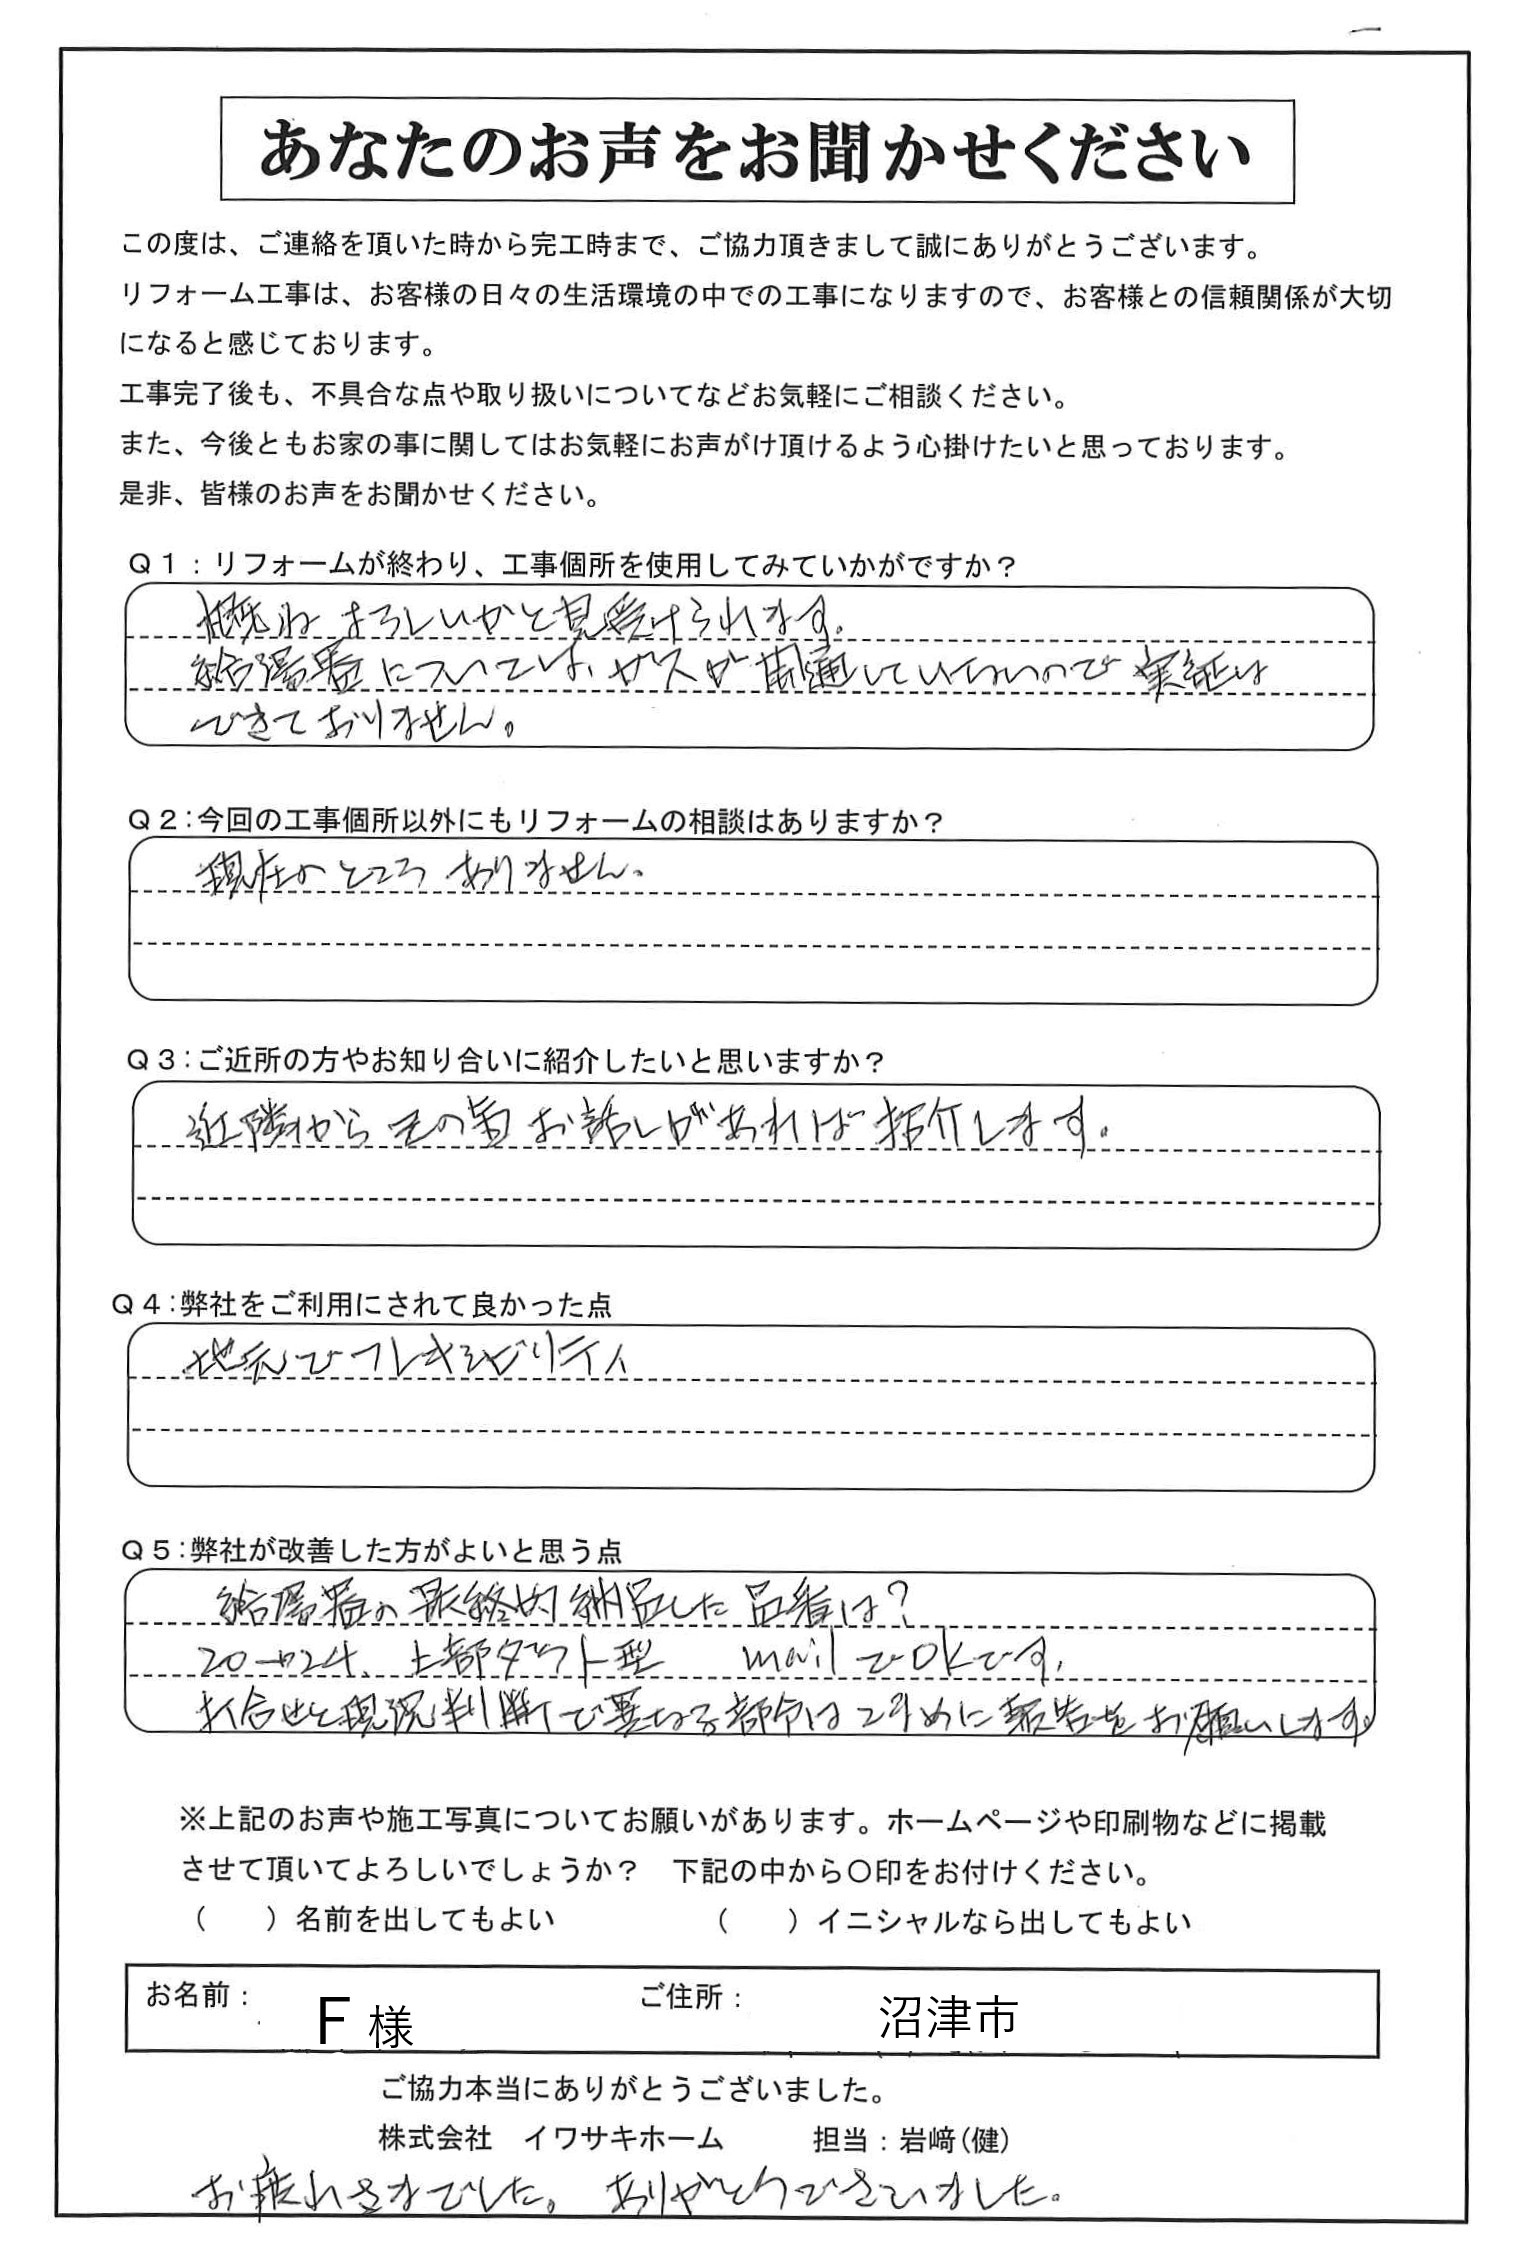 あなたのお声をお聞かせください
この度は、ご連絡を頂いた時から完工時まで、ご協力頂きまして誠にありがとうございます。
リフォーム工事は、お客様の日々の生活環境の中での工事になりますので、お客様との信頼関係が大切
になると感じております。
工事完了後も、不具合な点や取り扱いについてなどお気軽にご相談ください。
また、今後ともお家の事に関してはお気軽にお声がけ頂けるよう心掛けたいと思っております。
是非、皆様のお声をお聞かせください。
Q1:リフォームが終わり、工事個所を使用してみていかがですか?
概ねよろしいかと見受けられます。
給湯器については、ガスが開通していないので実証は
できておりません。
Q2:今回の工事個所以外にもリフォームの相談はありますか?
現在のところありません。
Q3:ご近所の方やお知り合いに紹介したいと思いますか?
近隣からその旨お話しがあれば紹介します。
Q4:弊社をご利用にされて良かった点
地元でフレキシビリティ
Q5:弊社が改善した方がよいと思う点
給湯器の最終的納品した品番は?
20→24、上部ダクト型 mailでOKです。
打合せと現況判断で異なる部分はこまめに報告をお願いします。
※上記のお声や施工写真についてお願いがあります。ホームページや印刷物などに掲載
させて頂いてよろしいでしょうか? 下記の中から〇印をお付けください。
( )名前を出してもよい ( )イニシャルなら出してもよい
お名前: F 様 ご住所: 沼津市
ご協力本当にありがとうございました。
株式会社 イワサキホーム 担当:岩﨑(健)
お疲れさまでした。ありがとうございました。